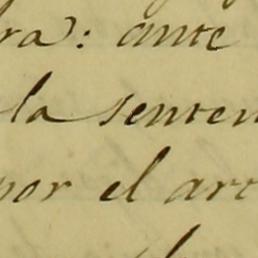 ra): ante
la senten
por el art